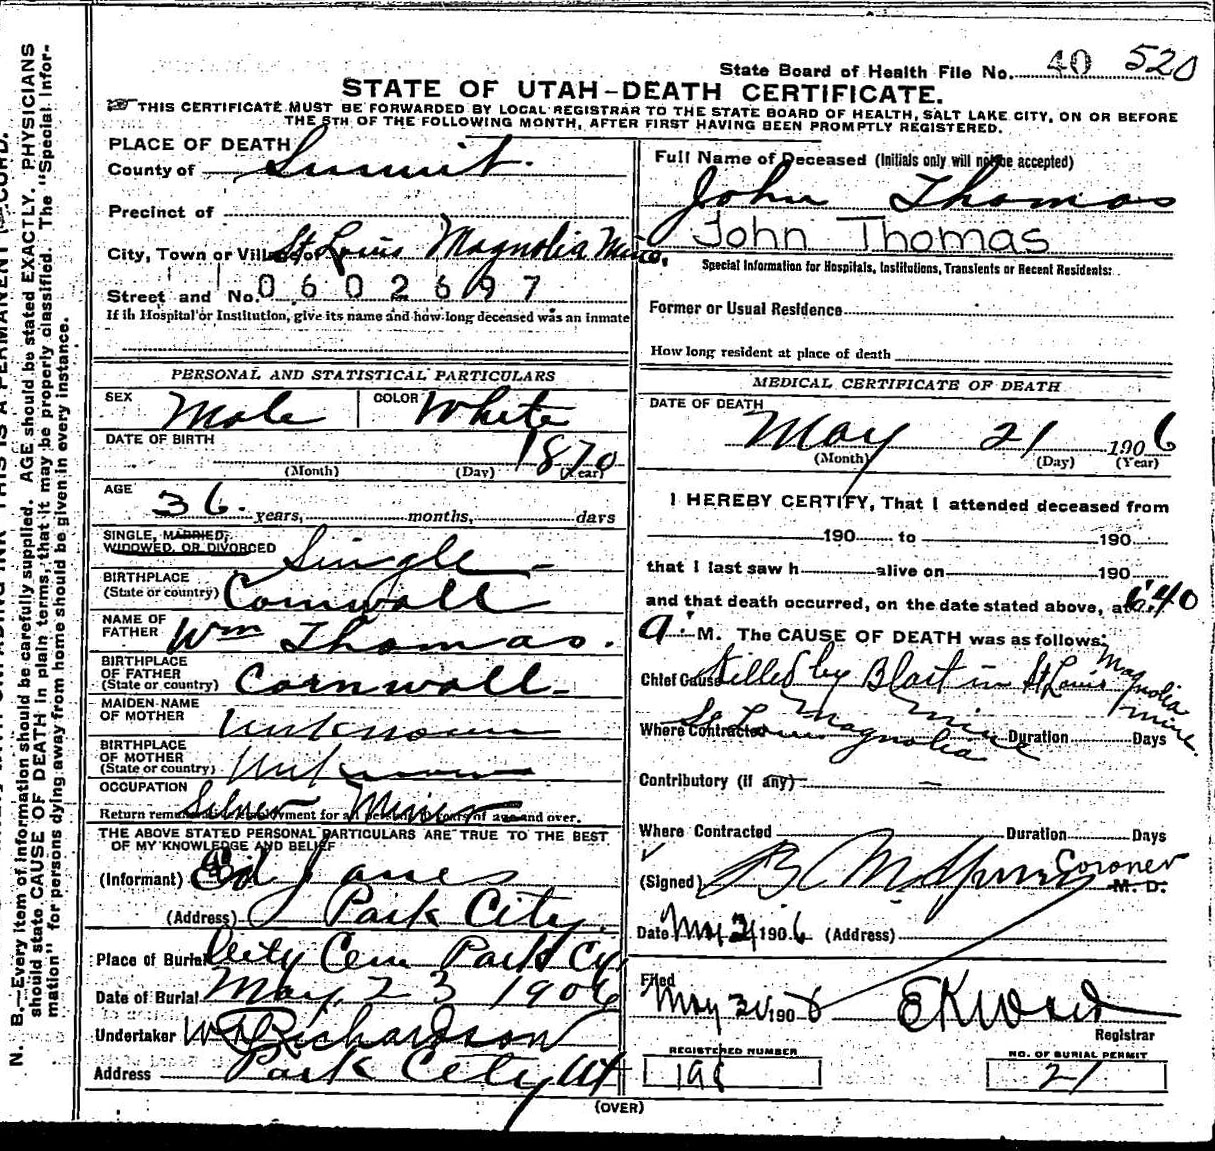 State Board of Health File No. 40 520
STATE OF UTAH-DEATH CERTIFICATE.
THIS CERTIFICATE MUST BE FORWARDED BY LOCAL REGISTRAR TO THE STATE BOARD OF HEALTH, SALT LAKE CITY, ON OR BEFORE
THE 5TH OF THE FOLLOWING MONTH, AFTER FIRST HAVING BEEN PROMPTLY REGISTERED.
PLACE OF DEATH
County of Summit.
Precinct of
City, Town or Village of St Louis Magnolia Mine.
Street and No. 0602697
If in Hospital or Institution, give its name and how long deceased was an inmate
PERSONAL AND STATISTICAL PARTICULARS
SEX Male COLOR White
DATE OF BIRTH 1870
(Month) (Day) (Year)
AGE 36. years, months, days
SINGLE, MARRIED,
WIDOWED, OR DIVORCED Single
BIRTHPLACE
(State or country) Cornwall
NAME OF
FATHER Wm Thomas.
BIRTHPLACE
OF FATHER
(State or country) Cornwall
MAIDEN NAME
OF MOTHER Unknown
BIRTHPLACE
OF MOTHER
(State or country) Unknown
OCCUPATION Silver Miner
Return remunerative employment for all persons 10 years of age and over.
THE ABOVE STATED PERSONAL PARTICULARS ARE TRUE TO THE BEST
OF MY KNOWLEDGE AND BELIEF
(Informant) Ed James
(Address) Park City
Place of Burial City Cem Park Cy
Date of Burial May 23 1906
Undertaker Richardson
Address Park City Ut
Full Name of Deceased (Initials only will not be accepted)
John Thomas
John Thomas
Special Information for Hospitals, Institutions, Transients or Recent Residents:
Former or Usual Residence
How long resident at place of death
MEDICAL CERTIFICATE OF DEATH
DATE OF DEATH
May 21 1906
(Month) (Day) (Year)
I HEREBY CERTIFY, That I attended deceased from
190 to 190
that I last saw h alive on 190
and that death occurred, on the date stated above, at 6:40
a. M. The CAUSE OF DEATH was as follows:
Chief Cause Killed by Blast in St Louis Magnolia mine
Where Contracted St Louis Magnolia Mine Duration Days
Contributory (if any) —
Where Contracted Duration Days
(Signed) Coroner M. D.
Date May 21 1906 (Address)
Filed May 31 1906 E K Ward
Registrar
REGISTERED NUMBER
NO. OF BURIAL PERMIT
21
(OVER)
N. B.—Every item of information should be carefully supplied. AGE should be stated EXACTLY. PHYSICIANS
should state CAUSE OF DEATH in plain terms, that it may be properly classified. The "Special Infor-
mation" for persons dying away from home should be given in every instance.